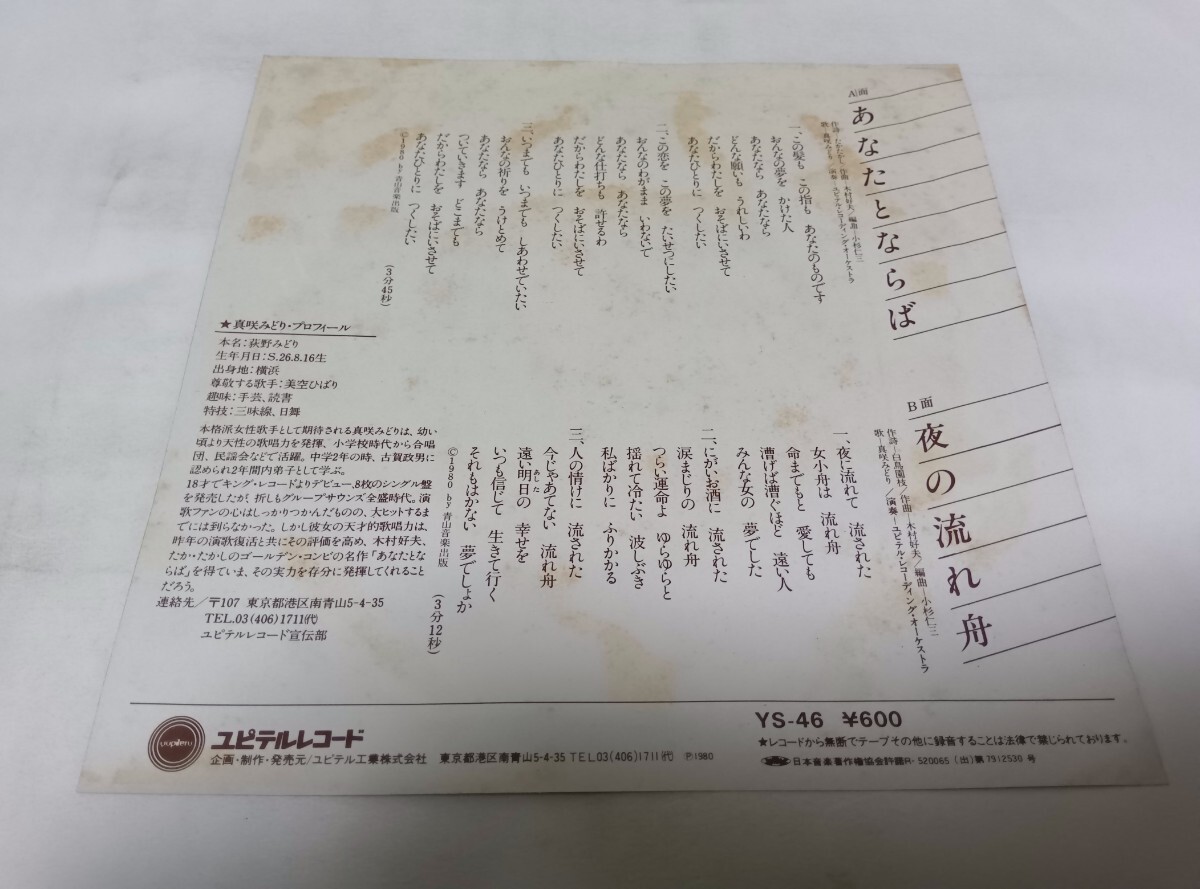 A面
あなたとならば
作詩―たか・たかし/作曲―木村好夫/編曲―小杉仁三
歌―真咲みどり/演奏―ユピテル・レコーディング・オーケストラ
一、この髪も この指も あなたのものです
おんなの夢を かけた人
あなたなら あなたなら
どんな願いも うれしいわ
だからわたしを おそばにいさせて
あなたひとりに つくしたい
二、この恋を この夢を たいせつにしたい
おんなのわがまま いわないで
あなたなら あなたなら
どんな仕打ちも 許せるわ
だからわたしを おそばにいさせて
あなたひとりに つくしたい
三、いつまでも いつまでも しあわせでいたい
おんなの祈りを うけとめて
あなたなら あなたなら
ついていきます どこまでも
だからわたしを おそばにいさせて
あなたひとりに つくしたい
(3分45秒)
©1980 by 青山音楽出版
B面
夜の流れ舟
作詩―白鳥園枝/作曲―木村好夫/編曲―小杉仁三
歌―真咲みどり/演奏―ユピテル・レコーディング・オーケストラ
一、夜に流れて 流された
女小舟は 流れ舟
命までもと 愛しても
漕げば漕ぐほど 遠い人
みんな女の 夢でした
二、にがいお酒に 流された
涙まじりの 流れ舟
つらい運命よ ゆらゆらと
揺れて冷たい 波しぶき
私ばかりに ふりかかる
三、人の情けに 流された
今じゃあてない 流れ舟
遠い明日の 幸せを
あした
いつも信じて 生きて行く
それもはかない 夢でしょか
(3分12秒)
©1980 by 青山音楽出版
★真咲みどり・プロフィール
本名:萩野みどり
生年月日:S.26.8.16生
出身地:横浜
尊敬する歌手:美空ひばり
趣味:手芸、読書
特技:三味線、日舞
本格派女性歌手として期待される真咲みどりは、幼い
頃より天性の歌唱力を発揮、小学校時代から合唱
団、民謡会などで活躍。中学2年の時、古賀政男に
認められ2年間内弟子として学ぶ。
18才でキング・レコードよりデビュー、8枚のシングル盤
を発売したが、折しもグループサウンズ全盛時代。演
歌ファンの心はしっかりつかんだものの、大ヒットするま
でには到らなかった。しかし彼女の天才的歌唱力は、
昨年の演歌復活と共にその評価を高め、木村好夫、
たか・たかしのゴールデン・コンビの名作「あなたとな
らば」を得ていま、その実力を存分に発揮してくれること
だろう。
連絡先/〒107 東京都港区南青山5-4-35
TEL.03(406)1711㈹
ユピテルレコード宣伝部
yupiteru
ユピテルレコード
企画・制作・発売元/ユピテル工業株式会社 東京都港区南青山5-4-35 TEL03(406)1711㈹ ℗1980
YS-46 ¥600
★レコードから無断でテープその他に録音することは法律で禁じられております。
日本音楽著作権協会許諾R-520065 (出)第7912530 号